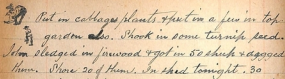 Put in cabbage plants & put in a few in top
garden also. Shook in some turnip seed.
John sledged in firewood & got in 50 sheep & dagged
them. Shore 20 of them. In shed tonight. 30